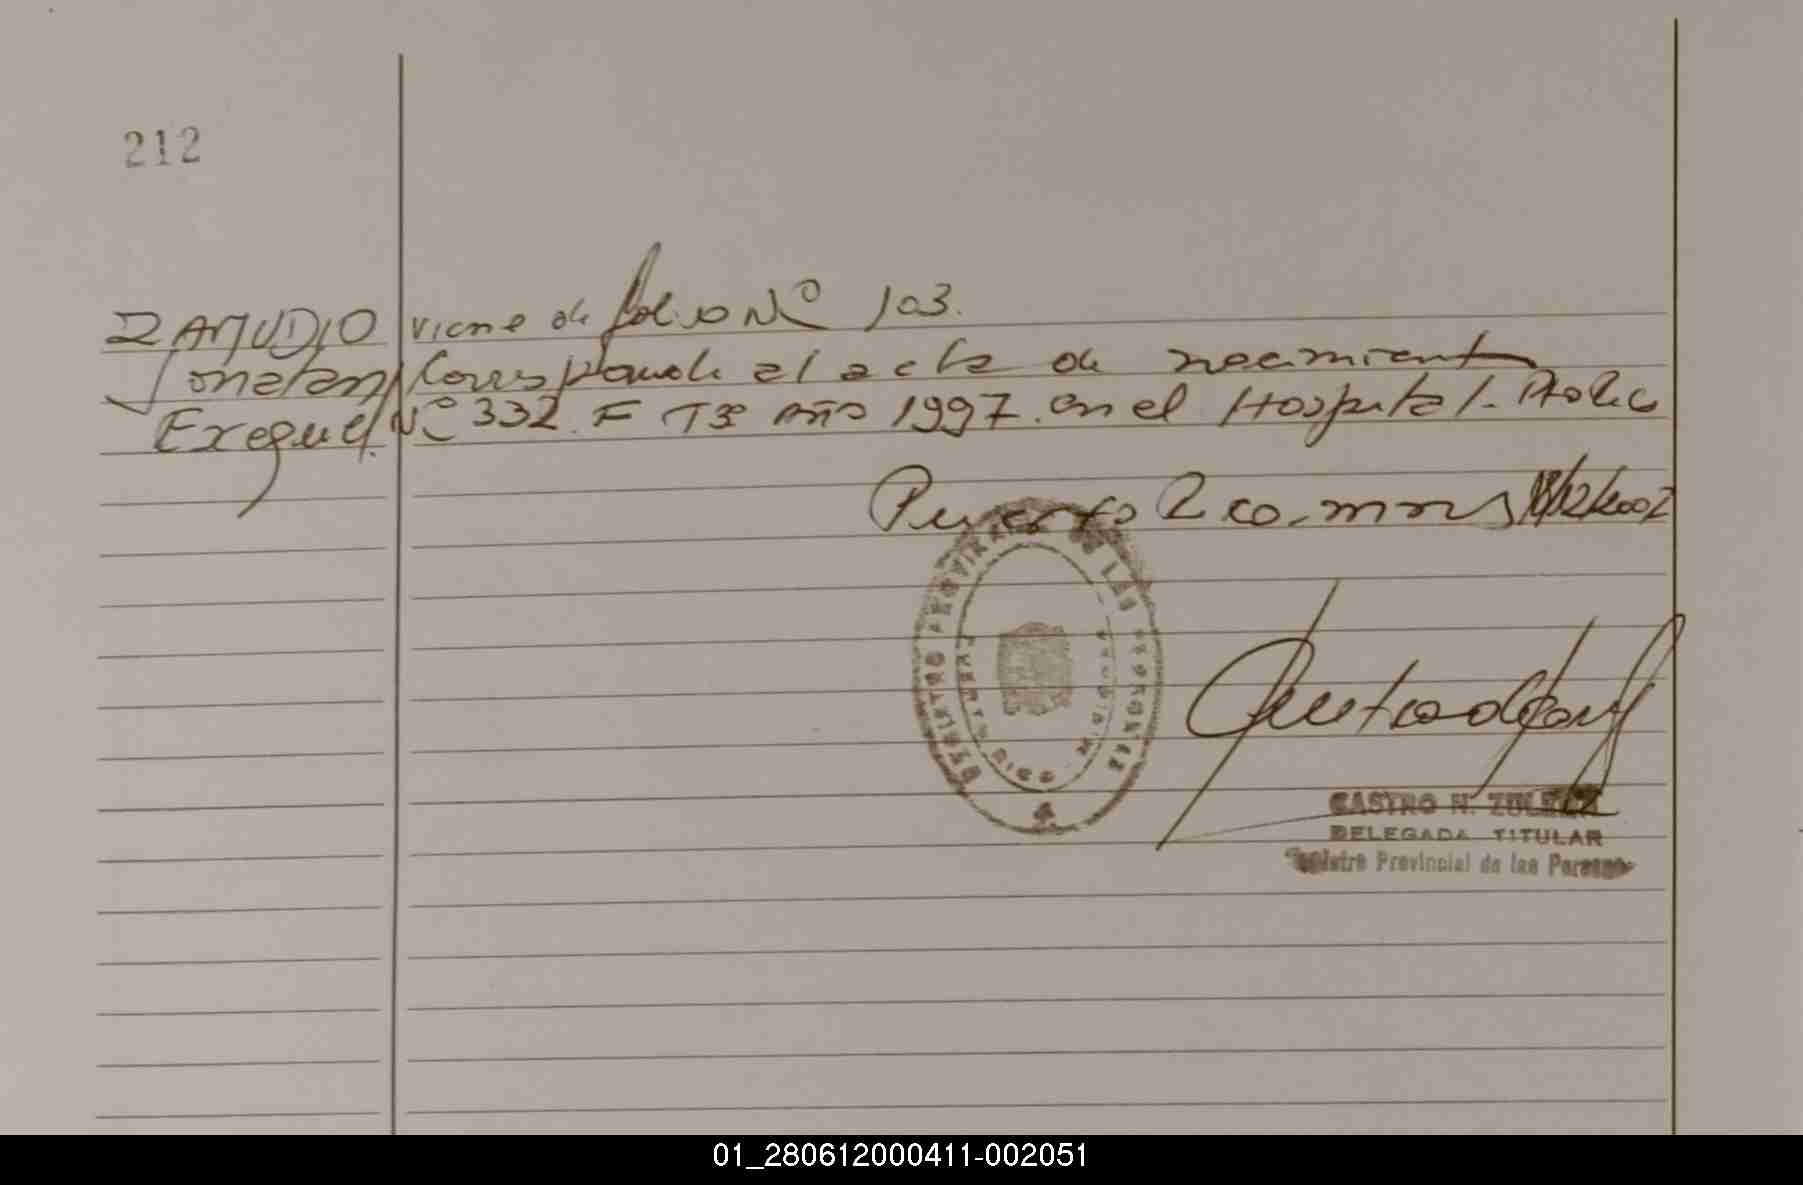 212
ZAMUDIO viene de folio Nº 103.
Jonatan Corresponde al acta de nacimiento
Exequiel. Nº 332. F T3º Año 1997. en el Hospital.
Puerto Rico. mnes 18/12/2002
REGISTRO PROVINCIAL DE LAS PERSONAS
CASTRO N. ZULEMA
DELEGADA TITULAR
Registro Provincial de las Personas
01_280612000411-002051